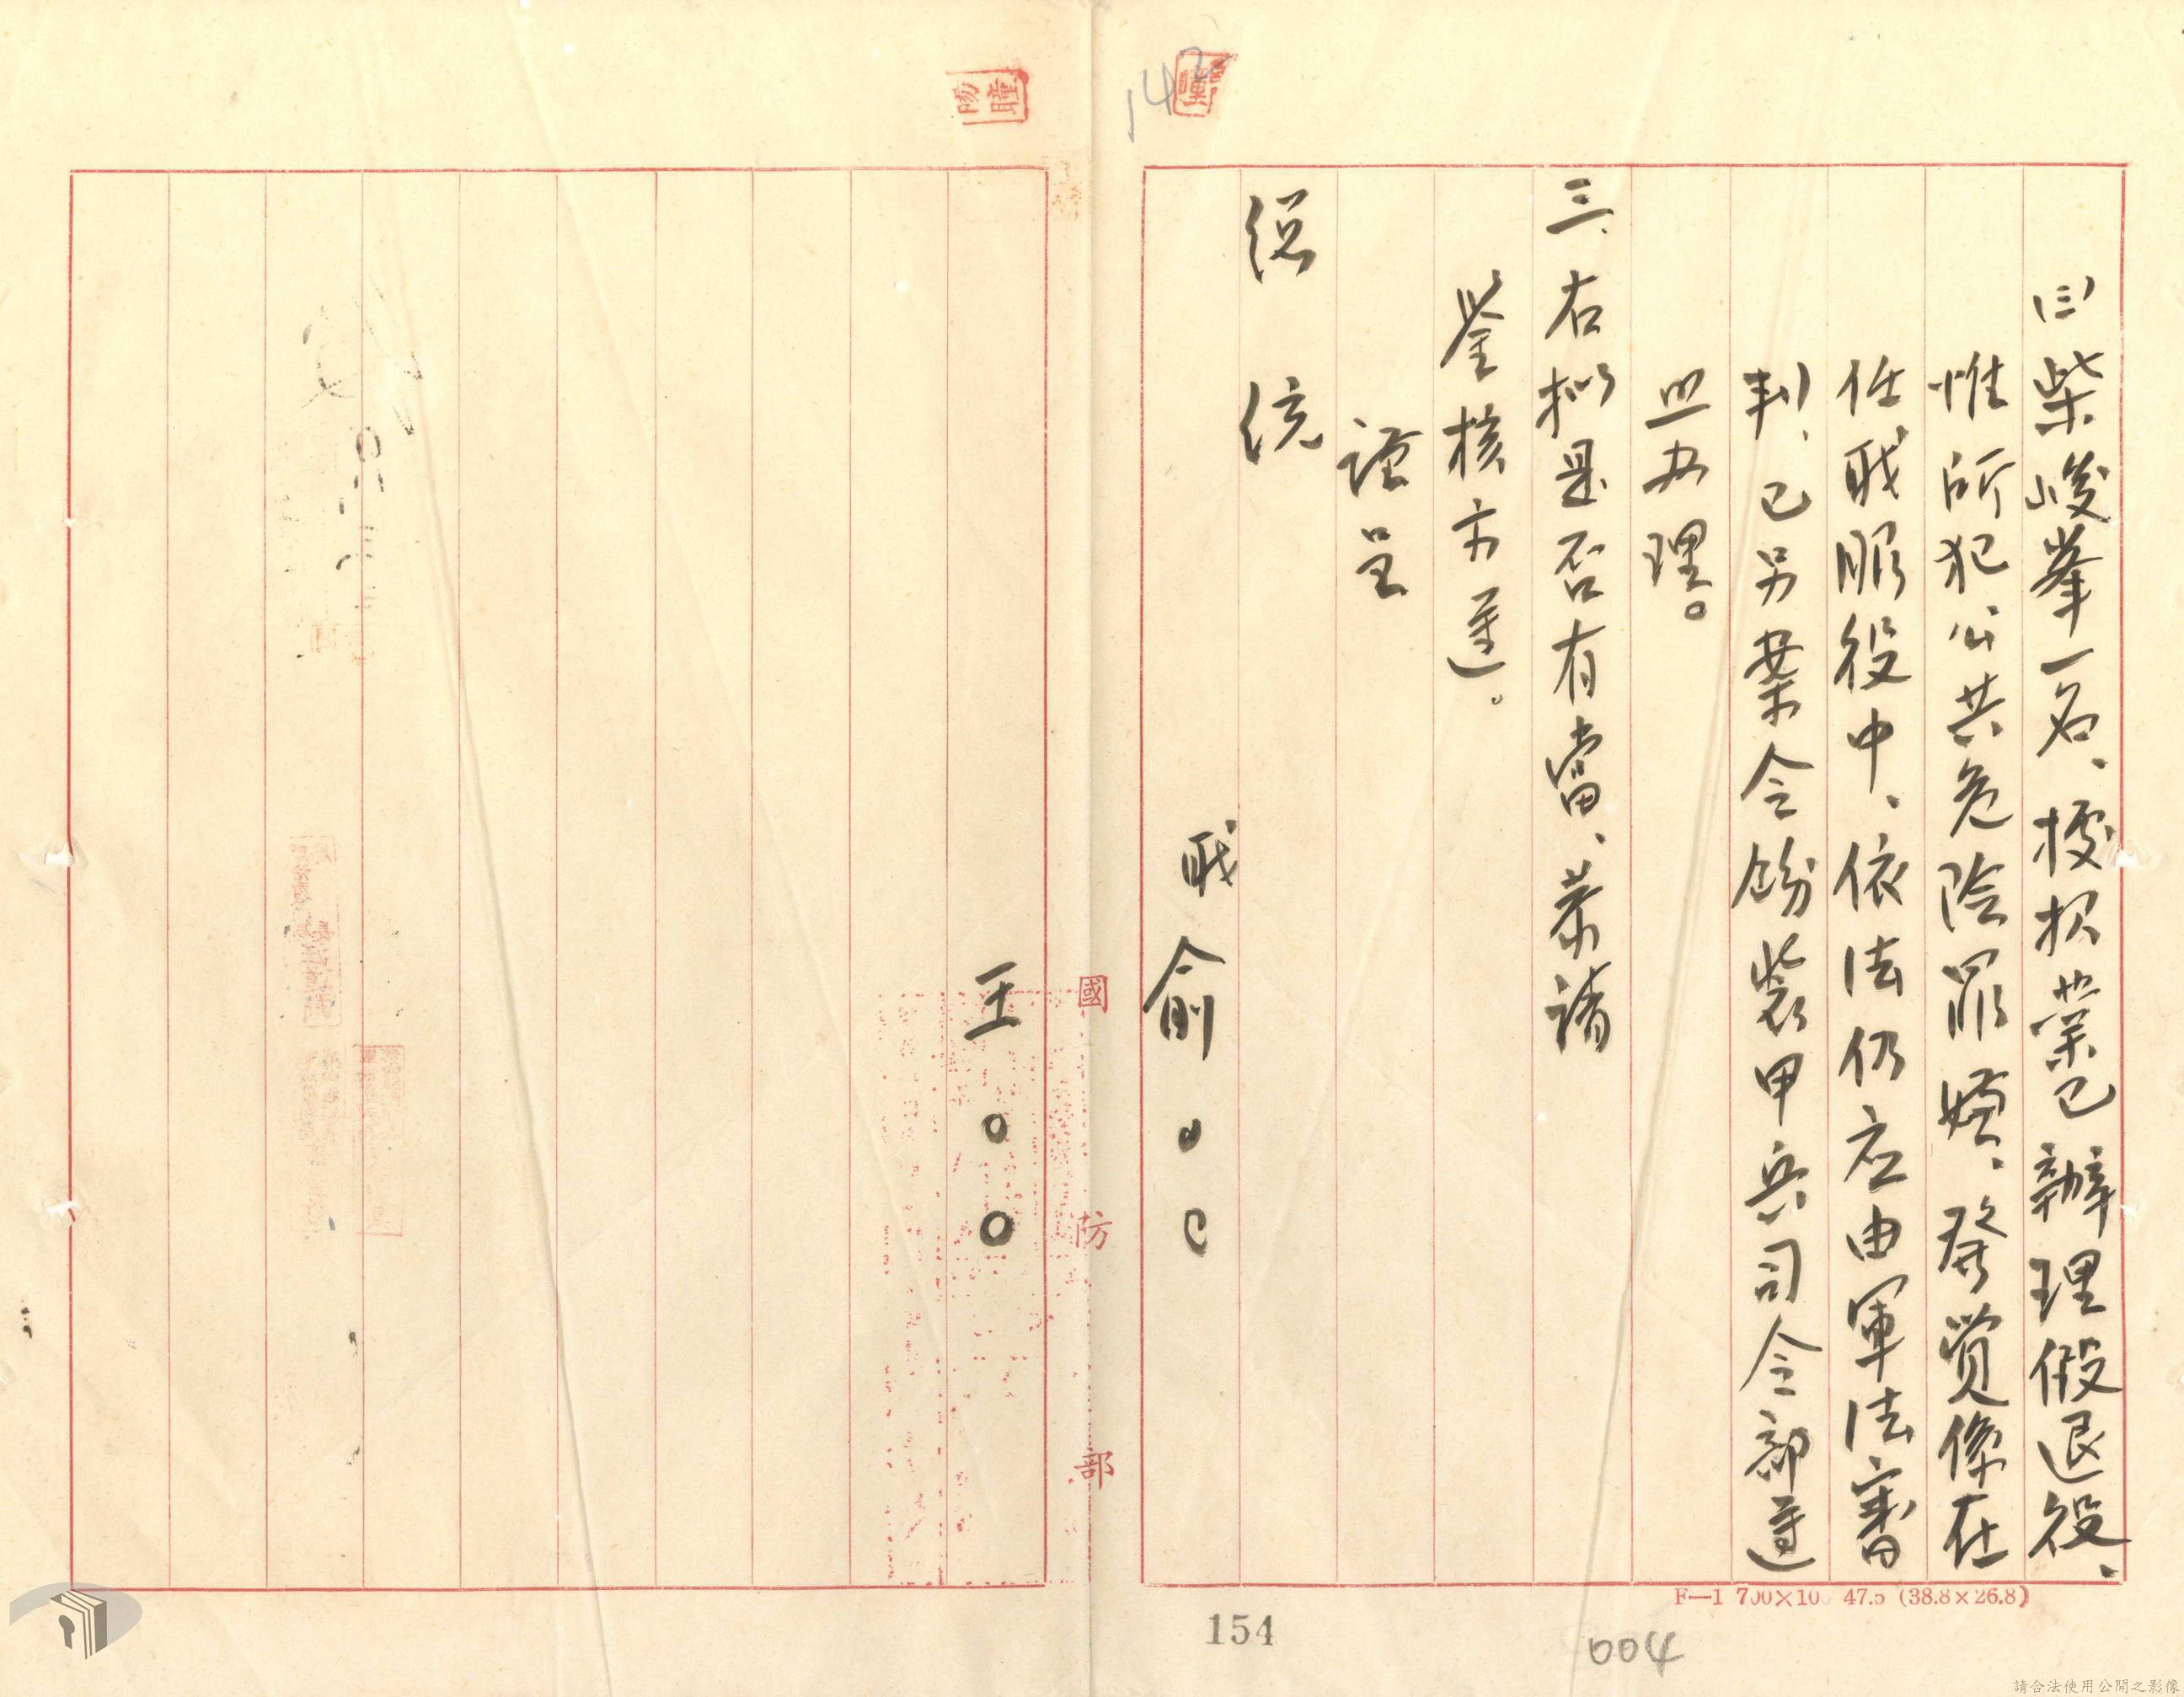 142
㈢柴峻峯一名、據报業已辦理假退役、
惟所犯公共危險罪嫌、發覺係在
任职服役中、依法仍应由軍法審
判、已另案令飭裝甲兵司令部遵
照办理。
三、右拟是否有當、恭請
鉴核示遵。
謹呈
總統
职俞○○
王○○
國防部
F—1 700×10 47.5 (38.8×26.8)
154
004
請合法使用公開之影像